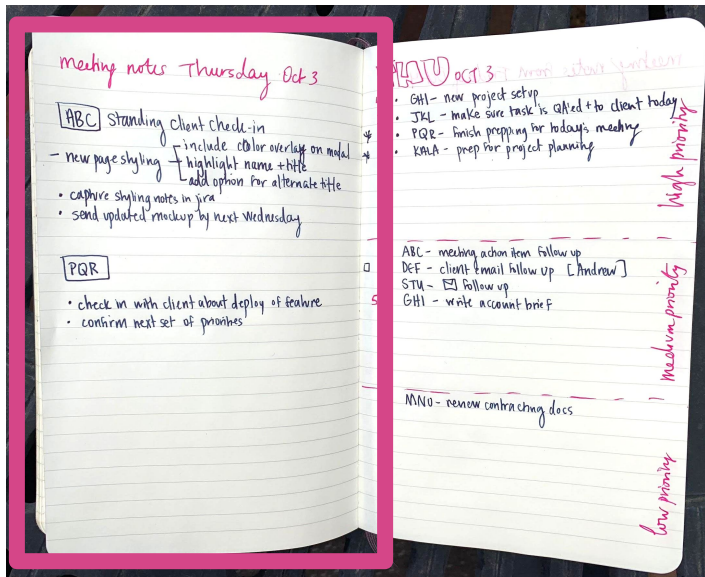 meeting notes Thursday Oct 3
ABC Standing client check-in
include color overlay on modal
- new page styling - highlight name + title
add option for alternate title
• capture styling notes in jira
• send updated mockup by next Wednesday
PQR
• check in with client about deploy of feature
• confirm next set of priorities
THU OCT 3
• GHI - new project setup
• JKL - make sure task is QA'ed + to client today
• PQR - finish prepping for today's meeting
• KALA - prep for project planning
high priority
ABC - meeting action item follow up
DEF - client email follow up [Andrew]
STU - follow up
GHI - write account brief
medium priority
MNO - review contracting docs
low priority